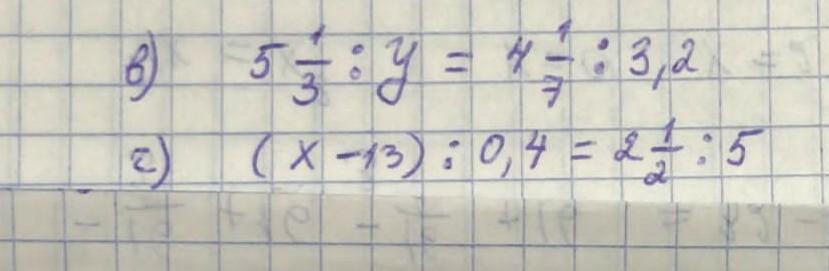 в) 5 1/3 : y = 4 1/7 : 3,2
г) (x - 13) : 0,4 = 2 1/2 : 5